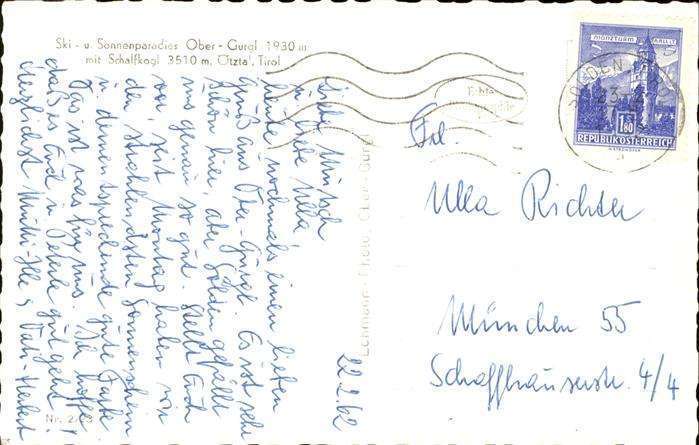 Ski - u. Sonnenparadies Ober - Gurgl 1930 m
mit Schalfkogl 3510 m, Ötztal, Tirol
MÜNZTURM HALL I. T.
S 1.80
REPUBLIK ÖSTERREICH
SÖLDEN
23.-2.
22.2.62
Ulla,
heute nochmals einen lieben
Gruß aus Ober-Gurgl. Es ist sehr
schön hier, aber Sölden gefällt
uns genau so gut. Stellt Euch
vor, seit Montag haben wir
den strahlendsten Sonnenschein
u. dementsprechende gute Laune
Das ist was für uns. Ich hoffe,
daß es Euch u. Peterle gut geht.
Herzlichst
Frl.
Ulla Richter
München 55
Schaffhauserstr. 4/4
Lohmann - Photo, Ober-Gurgl
Nr. 2